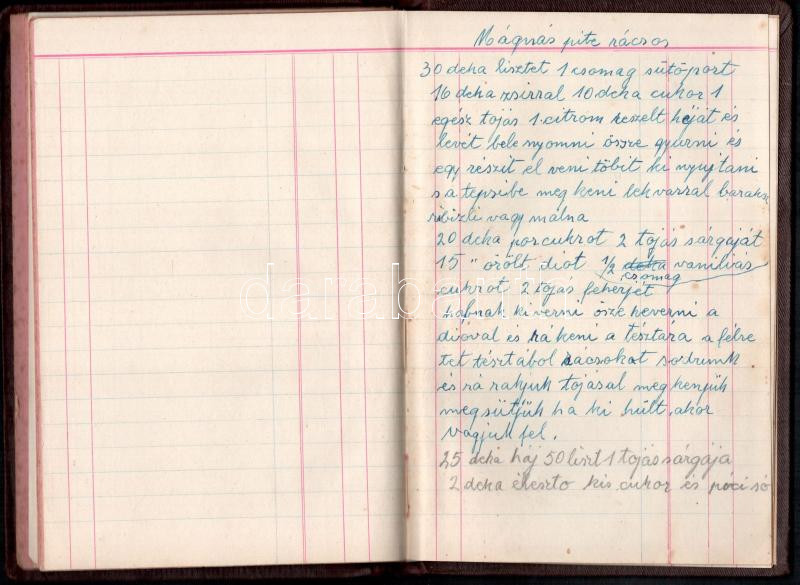 Mágnás pite rácsos
30 deka lisztet 1 csomag sütőport
16 deka zsirral 10 deka cukor 1
egész tojás 1 citrom reszelt héját és
levét bele nyomni össze gyurni és
egy részit el veni töbit ki nyujtani
s a tepsibe meg keni lekvarral barack
ribizli vagy malna
20 deka porcukrot 2 tojás sárgáját
15 " örölt diot 1/2 deka vaniliás
csomag
cukrot 2 tojás fehérjét
habnak ki verniösze keverni a
dioval és rá keni a tésztára a félre
tet tésztából rácsokat sodrunk
és rá rakjuk tojásal meg kenjük
meg sütjük ha ki hült akor
vágjuk fel.
25 deka háj 50 liszt 1 tojás sárgája
2 deka éleszto kis cukor és póci só
darabanth